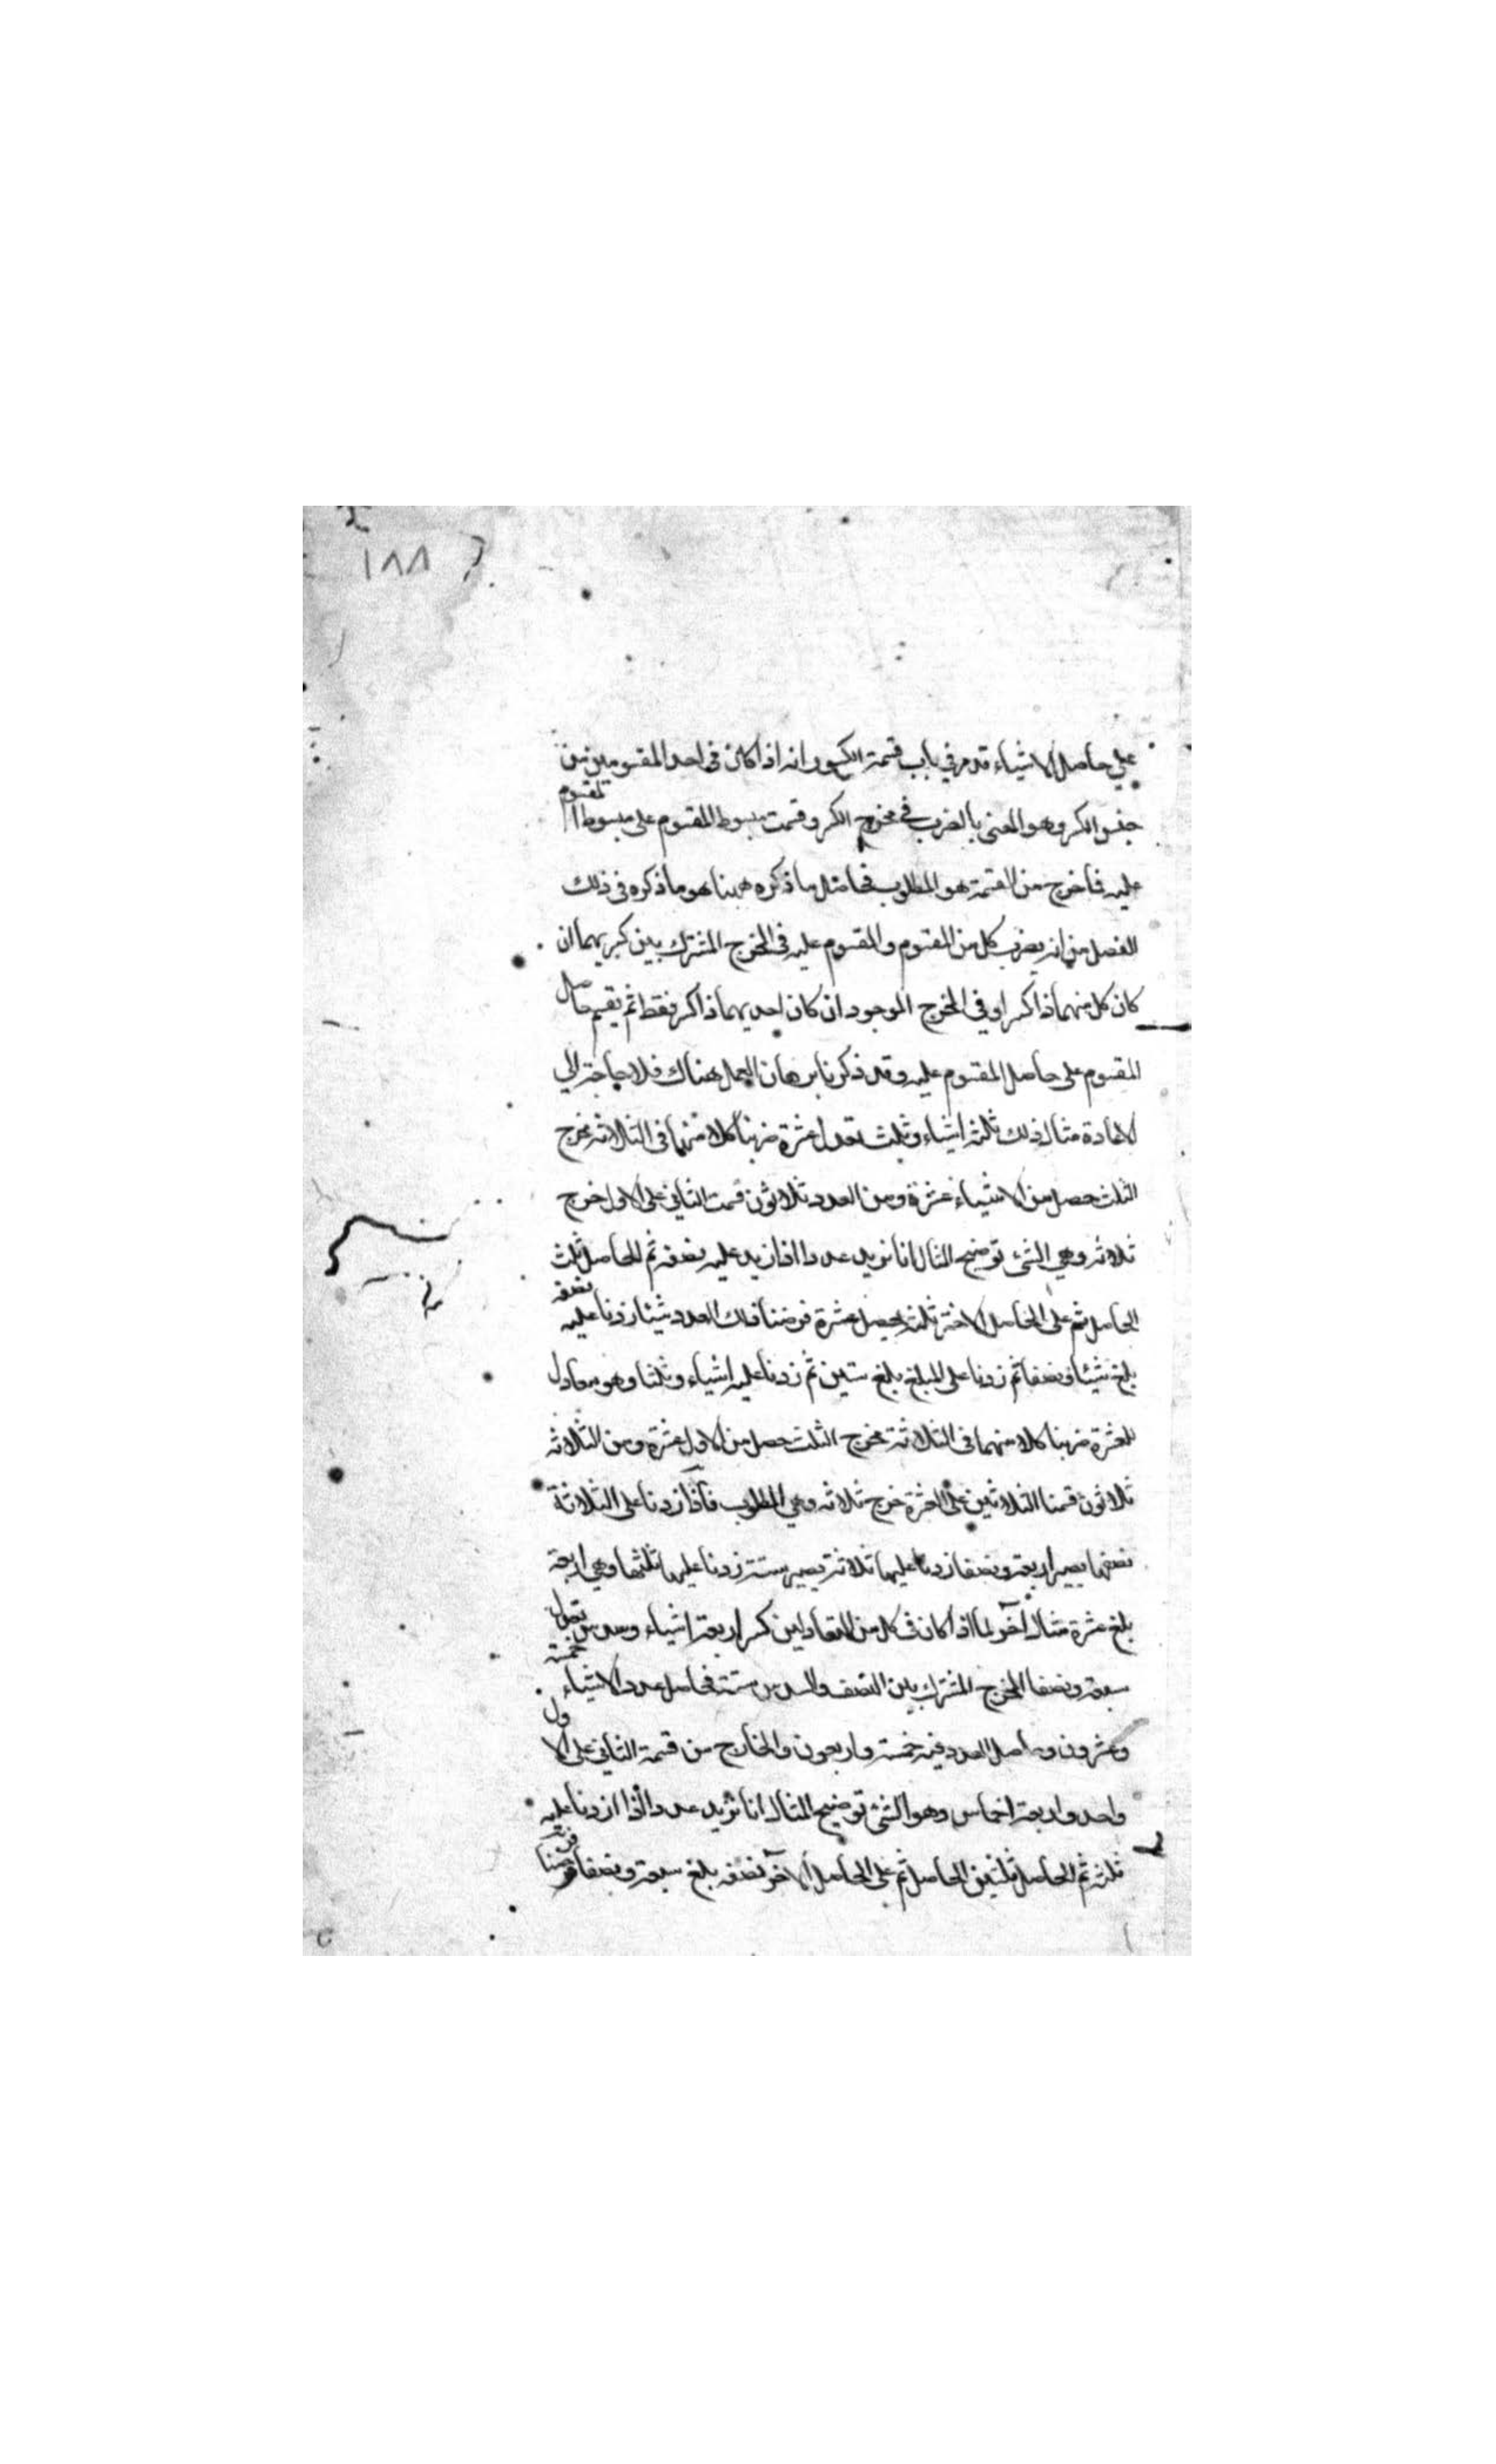 ١٨٨
علي حاصل الاشياء قد مر في باب قسمة الكسور انه اذا كان في احد المقسومين من
جنس الكسر وهو المعنى بالضرب في مخرج الكسر وقسمت مبسوط المقسوم على مبسوط المقسوم
عليه فما خرج من القسمة هو المطلوب فحاصل ما ذكره ههنا هو ما ذكره في ذلك
الفصل من انه يضرب كل من المقسوم والمقسوم عليه في المخرج المشترك بين كسريهما ان
كان كل منهما ذا كسر او في المخرج الموجود ان كان احديهما ذا كسر فقط ثم يقسم حاصل
المقسوم على حاصل المقسوم عليه وقد ذكرنا برهان العمل هناك فلا حاجة الي
الاعادة مثال ذلك ثلثة اشياء وثلث تعدل عشرة ضربنا كلا منهما في الثلاثة مخرج
الثلث حصل من الاشياء عشرة ومن العدد ثلاثون قسمت الثاني على الاول خرج
ثلاثه وهي الشئ توضيح المثال انا نريد عددا اذا زيد عليه نصفه ثم للحاصل ثلث
الحاصل ثم على الحاصل الاخر ثلثه يحصل عشرة فرضنا ذلك العدد شيئا زدنا عليه نصفه
بلغ شيئا ونصفا ثم زدنا على المبلغ بلغ ستين ثم زدنا عليه اشياء وثلثا وهو معادل
للعشرة ضربنا كلا منهما في الثلاثة مخرج الثلث حصل من الاول عشرة ومن الثلاثه
ثلاثون قسمنا الثلاثين على العشرة خرج ثلاثه وهي المطلوب فاذا زدنا على الثلاثة
نصفها يصير اربعة ونصفا زدنا عليها ثلاثة يصير ستة زدنا عليها ثلثها وهي اربعة
بلغ عشرة مثال آخر لما اذا كان في كل من المتعادلين كسر اربعة اشياء وسدس تعدل
سبعة ونصفا المخرج المشترك بين النصف والسدس ستة فحاصل عدد الاشياء خمسة
وعشرون وحاصل العدد فيه خمسة واربعون والخارج من قسمة الثاني على الاول
واحد واربعة اخماس وهو الشئ توضيح المثال انا نريد عددا اذا زدنا عليه
ثلثه ثم للحاصل ثلثين الحاصل ثم على الحاصل الآخر نصفه بلغ سبعة ونصفا فرضنا